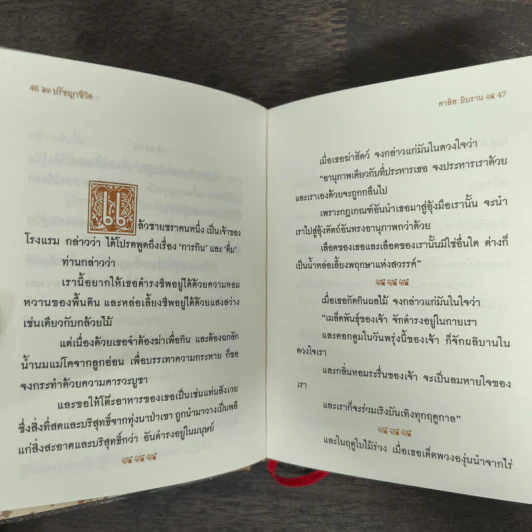 46 ปรัชญาชีวิต
แล้วชายชราคนหนึ่ง เป็นเจ้าของ
โรงแรม กล่าวว่า ได้โปรดพูดถึงเรื่อง 'การกิน' และ 'ดื่ม'
ท่านกล่าวว่า
เรานี้อยากให้เธอดำรงชีพอยู่ได้ด้วยความหอม
หวานของพื้นดิน และหล่อเลี้ยงชีพอยู่ได้ด้วยแสงสว่าง
เช่นเดียวกับกล้วยไม้
แต่เนื่องด้วยเธอจำต้องฆ่าเพื่อกิน และต้องฉกลัก
น้ำนมแม่โคจากลูกอ่อน เพื่อบรรเทาความกระหาย ก็ขอ
จงกระทำด้วยความคารวะบูชา
และขอให้โต๊ะอาหารของเธอเป็นเช่นแท่นสังเวย
ซึ่งสิ่งที่สดและบริสุทธิ์จากทุ่งนาป่าเขา ถูกนำมาวางเป็นพลี
แก่สิ่งสะอาดและบริสุทธิ์กว่า อันดำรงอยู่ในมนุษย์
คาลิล ยิบราน 47
เมื่อเธอฆ่าสัตว์ จงกล่าวแก่มันในดวงใจว่า
"อานุภาพเดียวกับที่ประหารเธอ จงประหารเราด้วย
และเราเองด้วยจะถูกกลืนไป
เพราะกฎเกณฑ์อันนำเธอมาสู่อุ้งมือเรานั้น จะนำ
เราไปสู่อุ้งหัตถ์อันทรงอานุภาพกว่าด้วย
เลือดของเธอและเลือดของเรานั้นมิใช่อื่นใด ต่างก็
เป็นน้ำหล่อเลี้ยงพฤกษาแห่งสวรรค์"
เมื่อเธอกัดกินผลไม้ จงกล่าวแก่มันในใจว่า
"เมล็ดพันธุ์ของเจ้า จักดำรงอยู่ในกายเรา
และดอกตูมในวันพรุ่งนี้ของเจ้า ก็จักผลิบานใน
ดวงใจเรา
และกลิ่นหอมระรื่นของเจ้า จะเป็นลมหายใจของ
เรา
และเราก็จะร่วมเริงบันเทิงทุกฤดูกาล"
และในฤดูใบไม้ร่วง เมื่อเธอเด็ดพวงองุ่นนำจากไร่